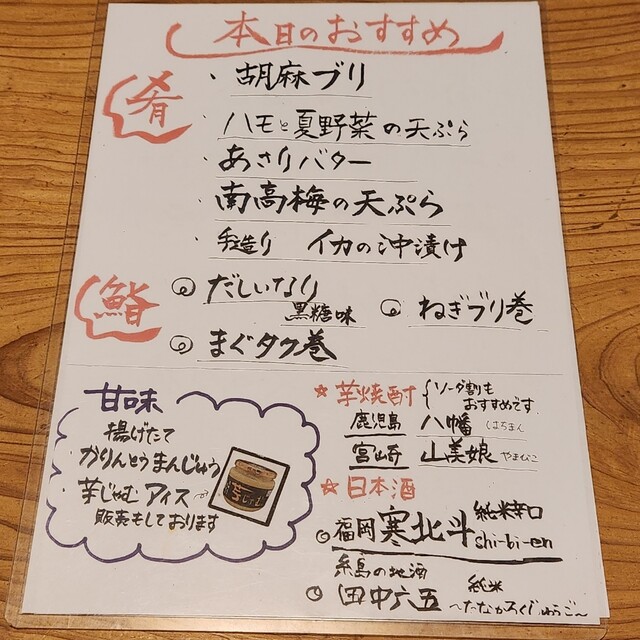 本日のおすすめ
肴
・胡麻ブリ
・ハモと夏野菜の天ぷら
・あさりバター
・南高梅の天ぷら
・手造り イカの沖漬け
鮨
◎だしいなり
黒糖味
◎ねぎブリ巻
◎まぐタク巻
甘味
・揚げたて
かりんとうまんじゅう
・芋じゃむアイス
販売もしております
芋じゃむ
★芋焼酎 {ソーダ割も
おすすめです
鹿児島 八幡 はちまん
宮崎 山美娘 やまびこ
★日本酒
◎福岡 寒北斗 純米辛口
shi-bi-en
糸島の地酒
◎田中六五 純米
～たなかろくじゅうご～